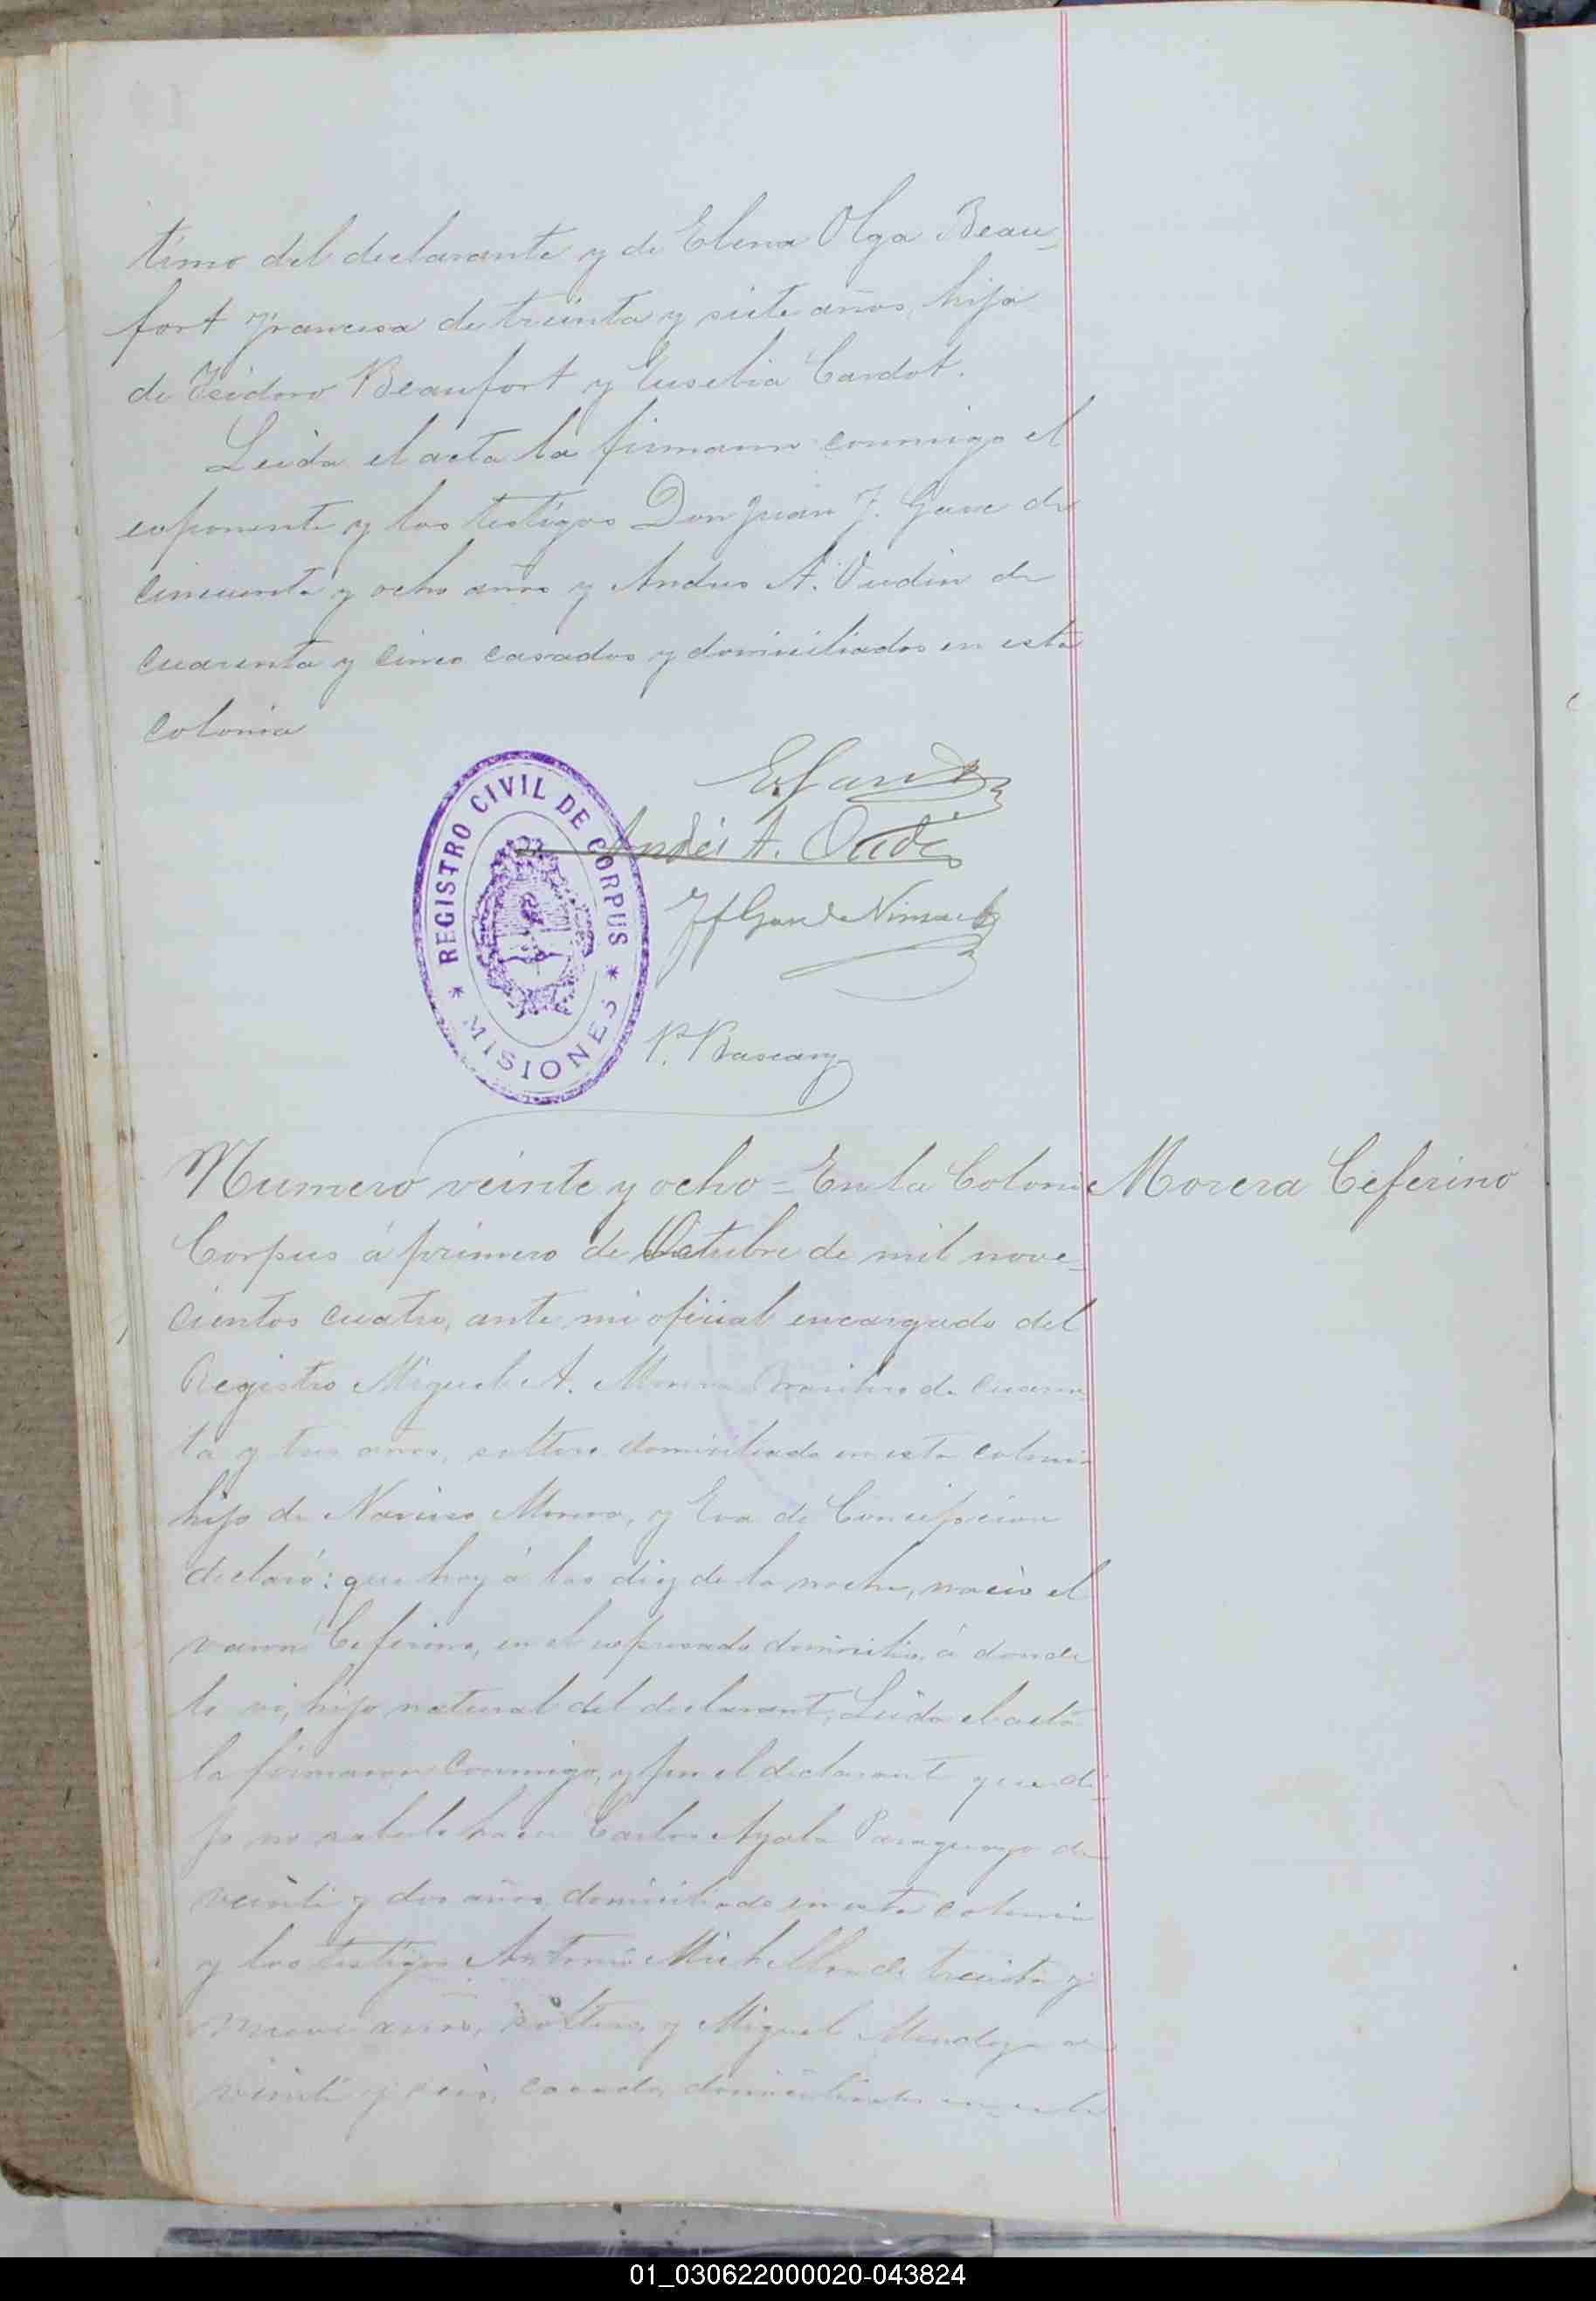 timo del declarante y de Elena Olga Beau-
fort francesa de treinta y siete años, hija
de Isidoro Beaufort y Eusebia Cardot.
Leida el acta la firmaron conmigo el
exponente y los testigos Don Juan J. de
cincuenta y ocho años y Andres A. Oudin de
cuarenta y cinco casados y domiciliados en esta
colonia
Andrés A. Oudin
P. Bascary
REGISTRO CIVIL DE CORPUS
* MISIONES *
Numero veinte y ocho = En la Colonia
Morera Ceferino
Corpus á primero de Octubre de mil nove-
cientos cuatro, ante mi oficial encargado del
Registro Miguel A. Morera de cuaren-
ta y tres años, soltero domiciliado en esta colonia
hijo de Narciso Morera, y Eva de Concepcion
declaró: que hoy á las diez de la noche, nacio el
varon Ceferino, en el expresado domicilio, á donde
lo vi, hijo natural del declarant, Leida el acta
la firmaron conmigo, y por el declarante que di-
jo no saberlo hacer Carlos Ayala Paraguayo de
veinte y dos años domiciliado en esta colonia
y los testigos Antonio de treinta y
nueve años, soltero, y Miguel Mendoza de
veinte y seis, casado, domiciliados en esta
01_030622000020-043824